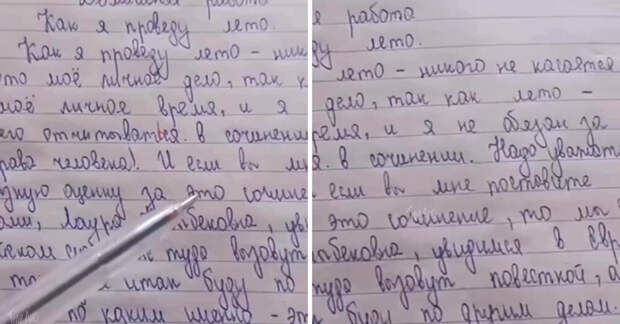 работа
Как я проведу лето.
Как я проведу лето - ник
это моё личное дело, так к
моё личное время, и я
его отчитываться. в сочинени
рава человека! И если вы мн
оценку за это сочине
ами, Лаура бековна, уви
туда вызовут
итак буду по
по каким именно - эт
я работа
ду лето.
лето - никого не касается
дело, так как лето -
ремя, и я не обязан за
я. в сочинении. Надо уважат
если вы мне поставите
это сочинение, то мы
бековна, увидимся в Евр
туда вызовут повесткой, а
буду по другим делам.